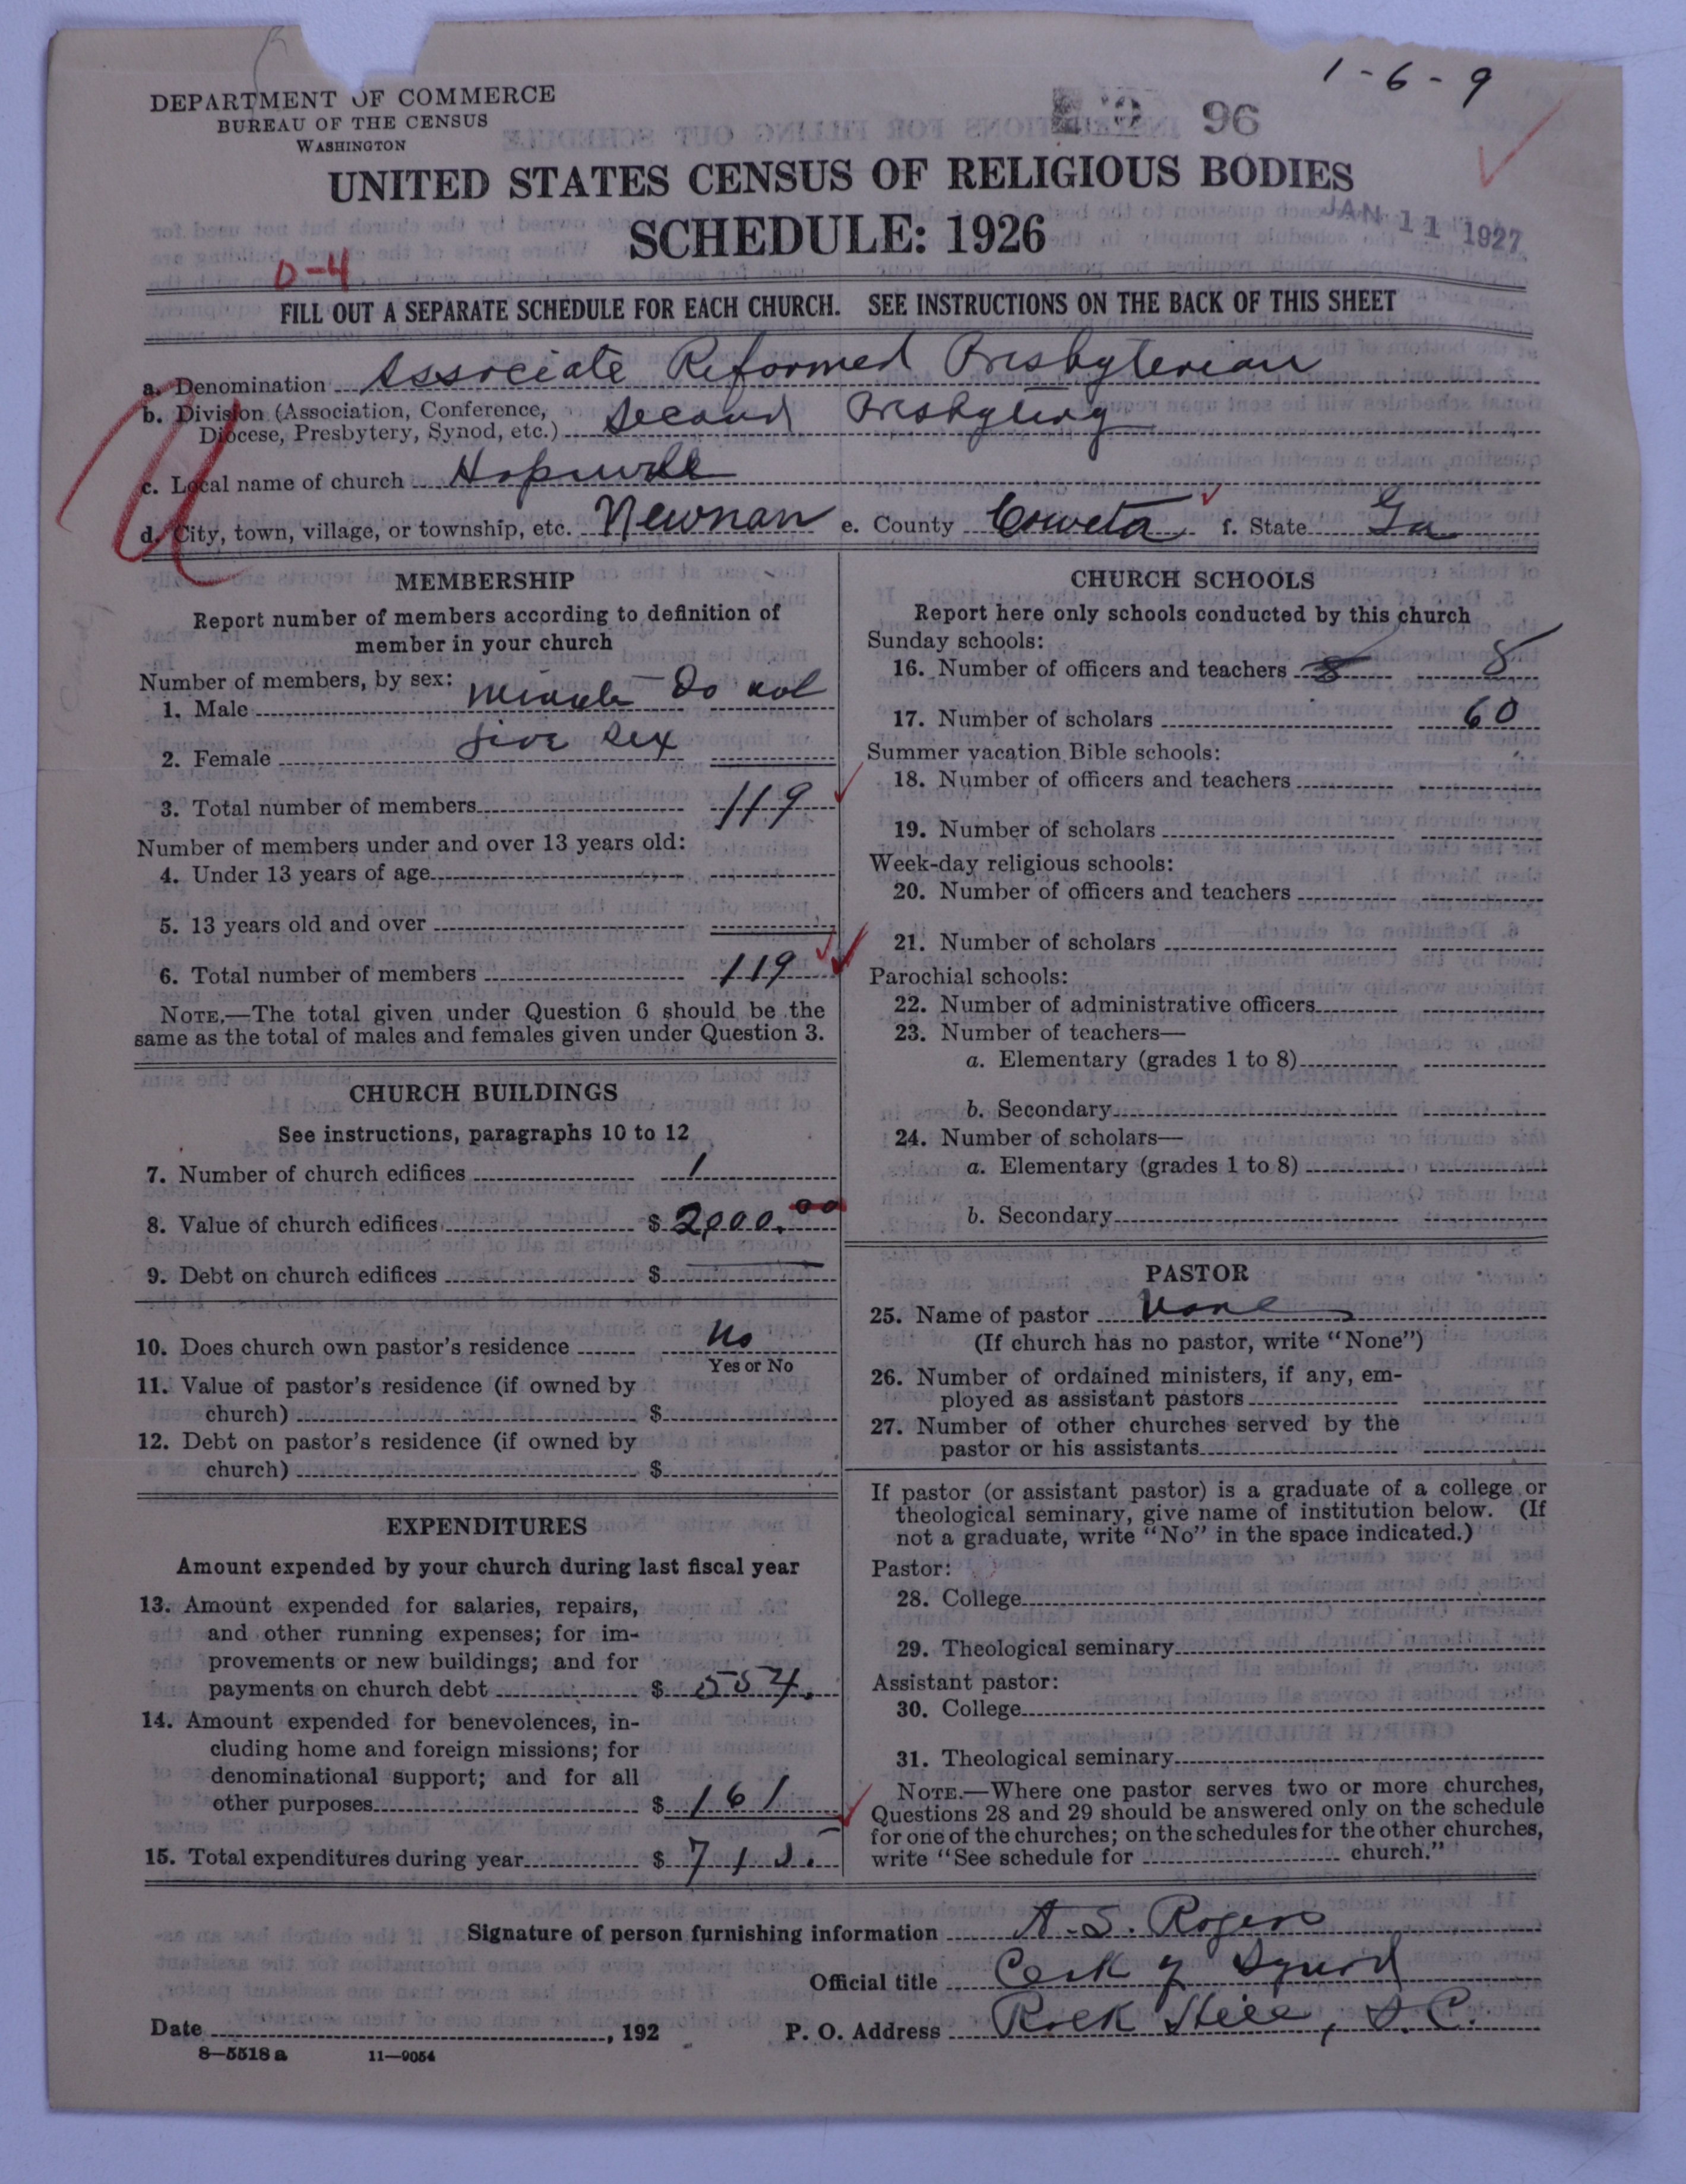 1-6-9
DEPARTMENT OF COMMERCE
BUREAU OF THE CENSUS
WASHINGTON
96
UNITED STATES CENSUS OF RELIGIOUS BODIES
SCHEDULE: 1926
JAN 11 1927
0-4
FILL OUT A SEPARATE SCHEDULE FOR EACH CHURCH. SEE INSTRUCTIONS ON THE BACK OF THIS SHEET
a. Denomination Associate Reformed Presbyterian
b. Division (Association, Conference, Diocese, Presbytery, Synod, etc.) Second Presbytery
c. Local name of church Hopewell
d. City, town, village, or township, etc. Newnan e. County Coweta f. State Ga
MEMBERSHIP
Report number of members according to definition of
member in your church
Number of members, by sex:
1. Male Minutes Do not
2. Female give sex
3. Total number of members 119
Number of members under and over 13 years old:
4. Under 13 years of age
5. 13 years old and over
6. Total number of members 119
NOTE.—The total given under Question 6 should be the
same as the total of males and females given under Question 3.
CHURCH BUILDINGS
See instructions, paragraphs 10 to 12
7. Number of church edifices 1
8. Value of church edifices $ 2,000.00
9. Debt on church edifices $
10. Does church own pastor's residence No
Yes or No
11. Value of pastor's residence (if owned by
church) $
12. Debt on pastor's residence (if owned by
church) $
EXPENDITURES
Amount expended by your church during last fiscal year
13. Amount expended for salaries, repairs,
and other running expenses; for im-
provements or new buildings; and for
payments on church debt $ 554.
14. Amount expended for benevolences, in-
cluding home and foreign missions; for
denominational support; and for all
other purposes $ 161
15. Total expenditures during year $ 715.
CHURCH SCHOOLS
Report here only schools conducted by this church
Sunday schools:
16. Number of officers and teachers 8 8
17. Number of scholars 60
Summer vacation Bible schools:
18. Number of officers and teachers
19. Number of scholars
Week-day religious schools:
20. Number of officers and teachers
21. Number of scholars
Parochial schools:
22. Number of administrative officers
23. Number of teachers—
a. Elementary (grades 1 to 8)
b. Secondary
24. Number of scholars—
a. Elementary (grades 1 to 8)
b. Secondary
PASTOR
25. Name of pastor None
(If church has no pastor, write "None")
26. Number of ordained ministers, if any, em-
ployed as assistant pastors
27. Number of other churches served by the
pastor or his assistants
If pastor (or assistant pastor) is a graduate of a college or
theological seminary, give name of institution below. (If
not a graduate, write "No" in the space indicated.)
Pastor:
28. College
29. Theological seminary
Assistant pastor:
30. College
31. Theological seminary
NOTE.—Where one pastor serves two or more churches,
Questions 28 and 29 should be answered only on the schedule
for one of the churches; on the schedules for the other churches,
write "See schedule for church."
Signature of person furnishing information A. S. Rogers
Official title Cerk of Synod
Date , 192 P. O. Address Rock Hill, S.C.
8—5518 a 11—9054